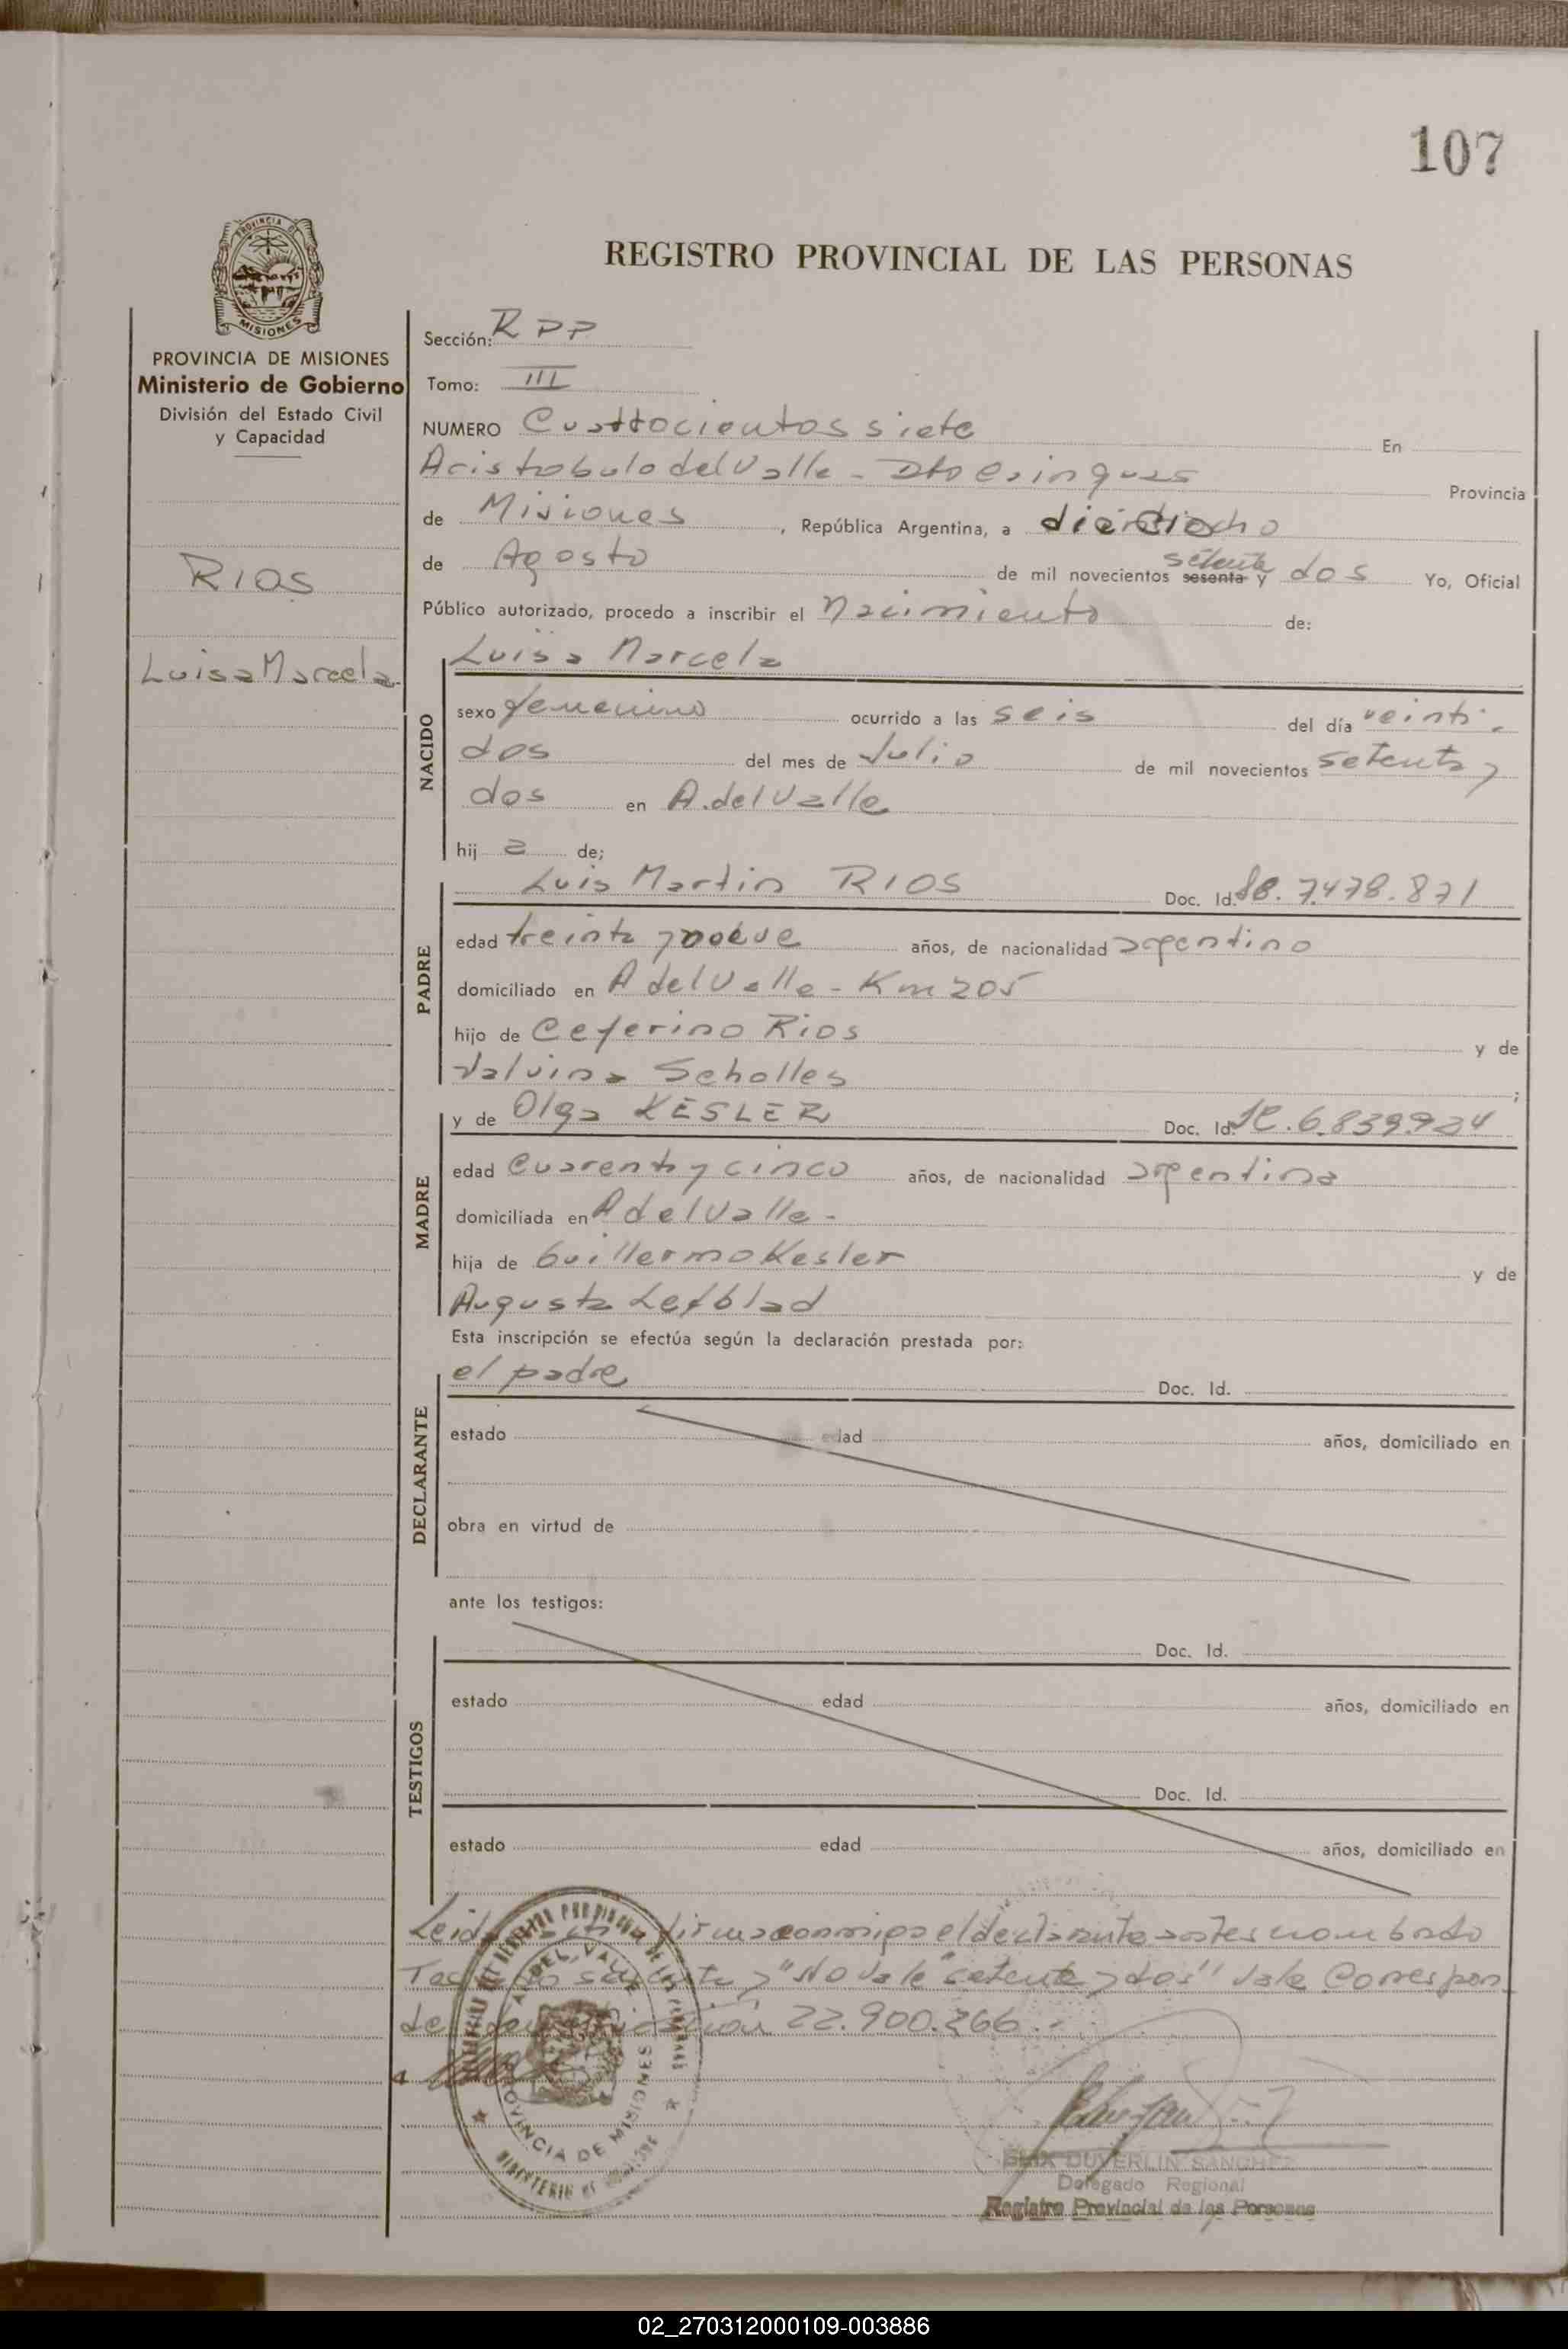 107
PROVINCIA DE
MISIONES
PROVINCIA DE MISIONES
Ministerio de Gobierno
División del Estado Civil
y Capacidad
RIOS
Luisa Marcela
REGISTRO PROVINCIAL DE LAS PERSONAS
Sección: RPP
Tomo: III
NUMERO Cuattocientos siete En
Aristobulo del Valle - Dto Cainguas Provincia
de Misiones, República Argentina, a dieciocho
de Agosto de mil novecientos sesenta y setenta dos Yo, Oficial
Público autorizado, procedo a inscribir el Nacimiento de:
NACIDO
Luisa Marcela
sexo femenino ocurrido a las seis del día veinti-
dos del mes de Julio de mil novecientos setenta y
dos en A. del Valle
hija de;
PADRE
Luis Martin RIOS Doc. Id. 7.478.871
edad treinta y nueve años, de nacionalidad argentino
domiciliado en A del Valle - Km 205
hijo de Ceferino Rios y de
Scholles ;
MADRE
y de Olga KESLER Doc. Id. 6.839.924
edad Cuarenta y cinco años, de nacionalidad argentina
domiciliada en A del Valle -
hija de Guillermo Kesler y de
Augusta Lefblad
Esta inscripción se efectúa según la declaración prestada por:
DECLARANTE
el padre Doc. Id.
estado edad años, domiciliado en
obra en virtud de
ante los testigos:
TESTIGOS
Doc. Id.
estado edad años, domiciliado en
Doc. Id.
estado edad años, domiciliado en
Leida firma conmigo el declarante antes nombrado
"No vale" "setenta y dos" Vale Correspon
de 22.900.266.-
A. DEL VALLE
PROVINCIA DE MISIONES
DUVERLIN SANCHEZ
Delegado Regional
Registro Provincial de las Personas
02_270312000109-003886